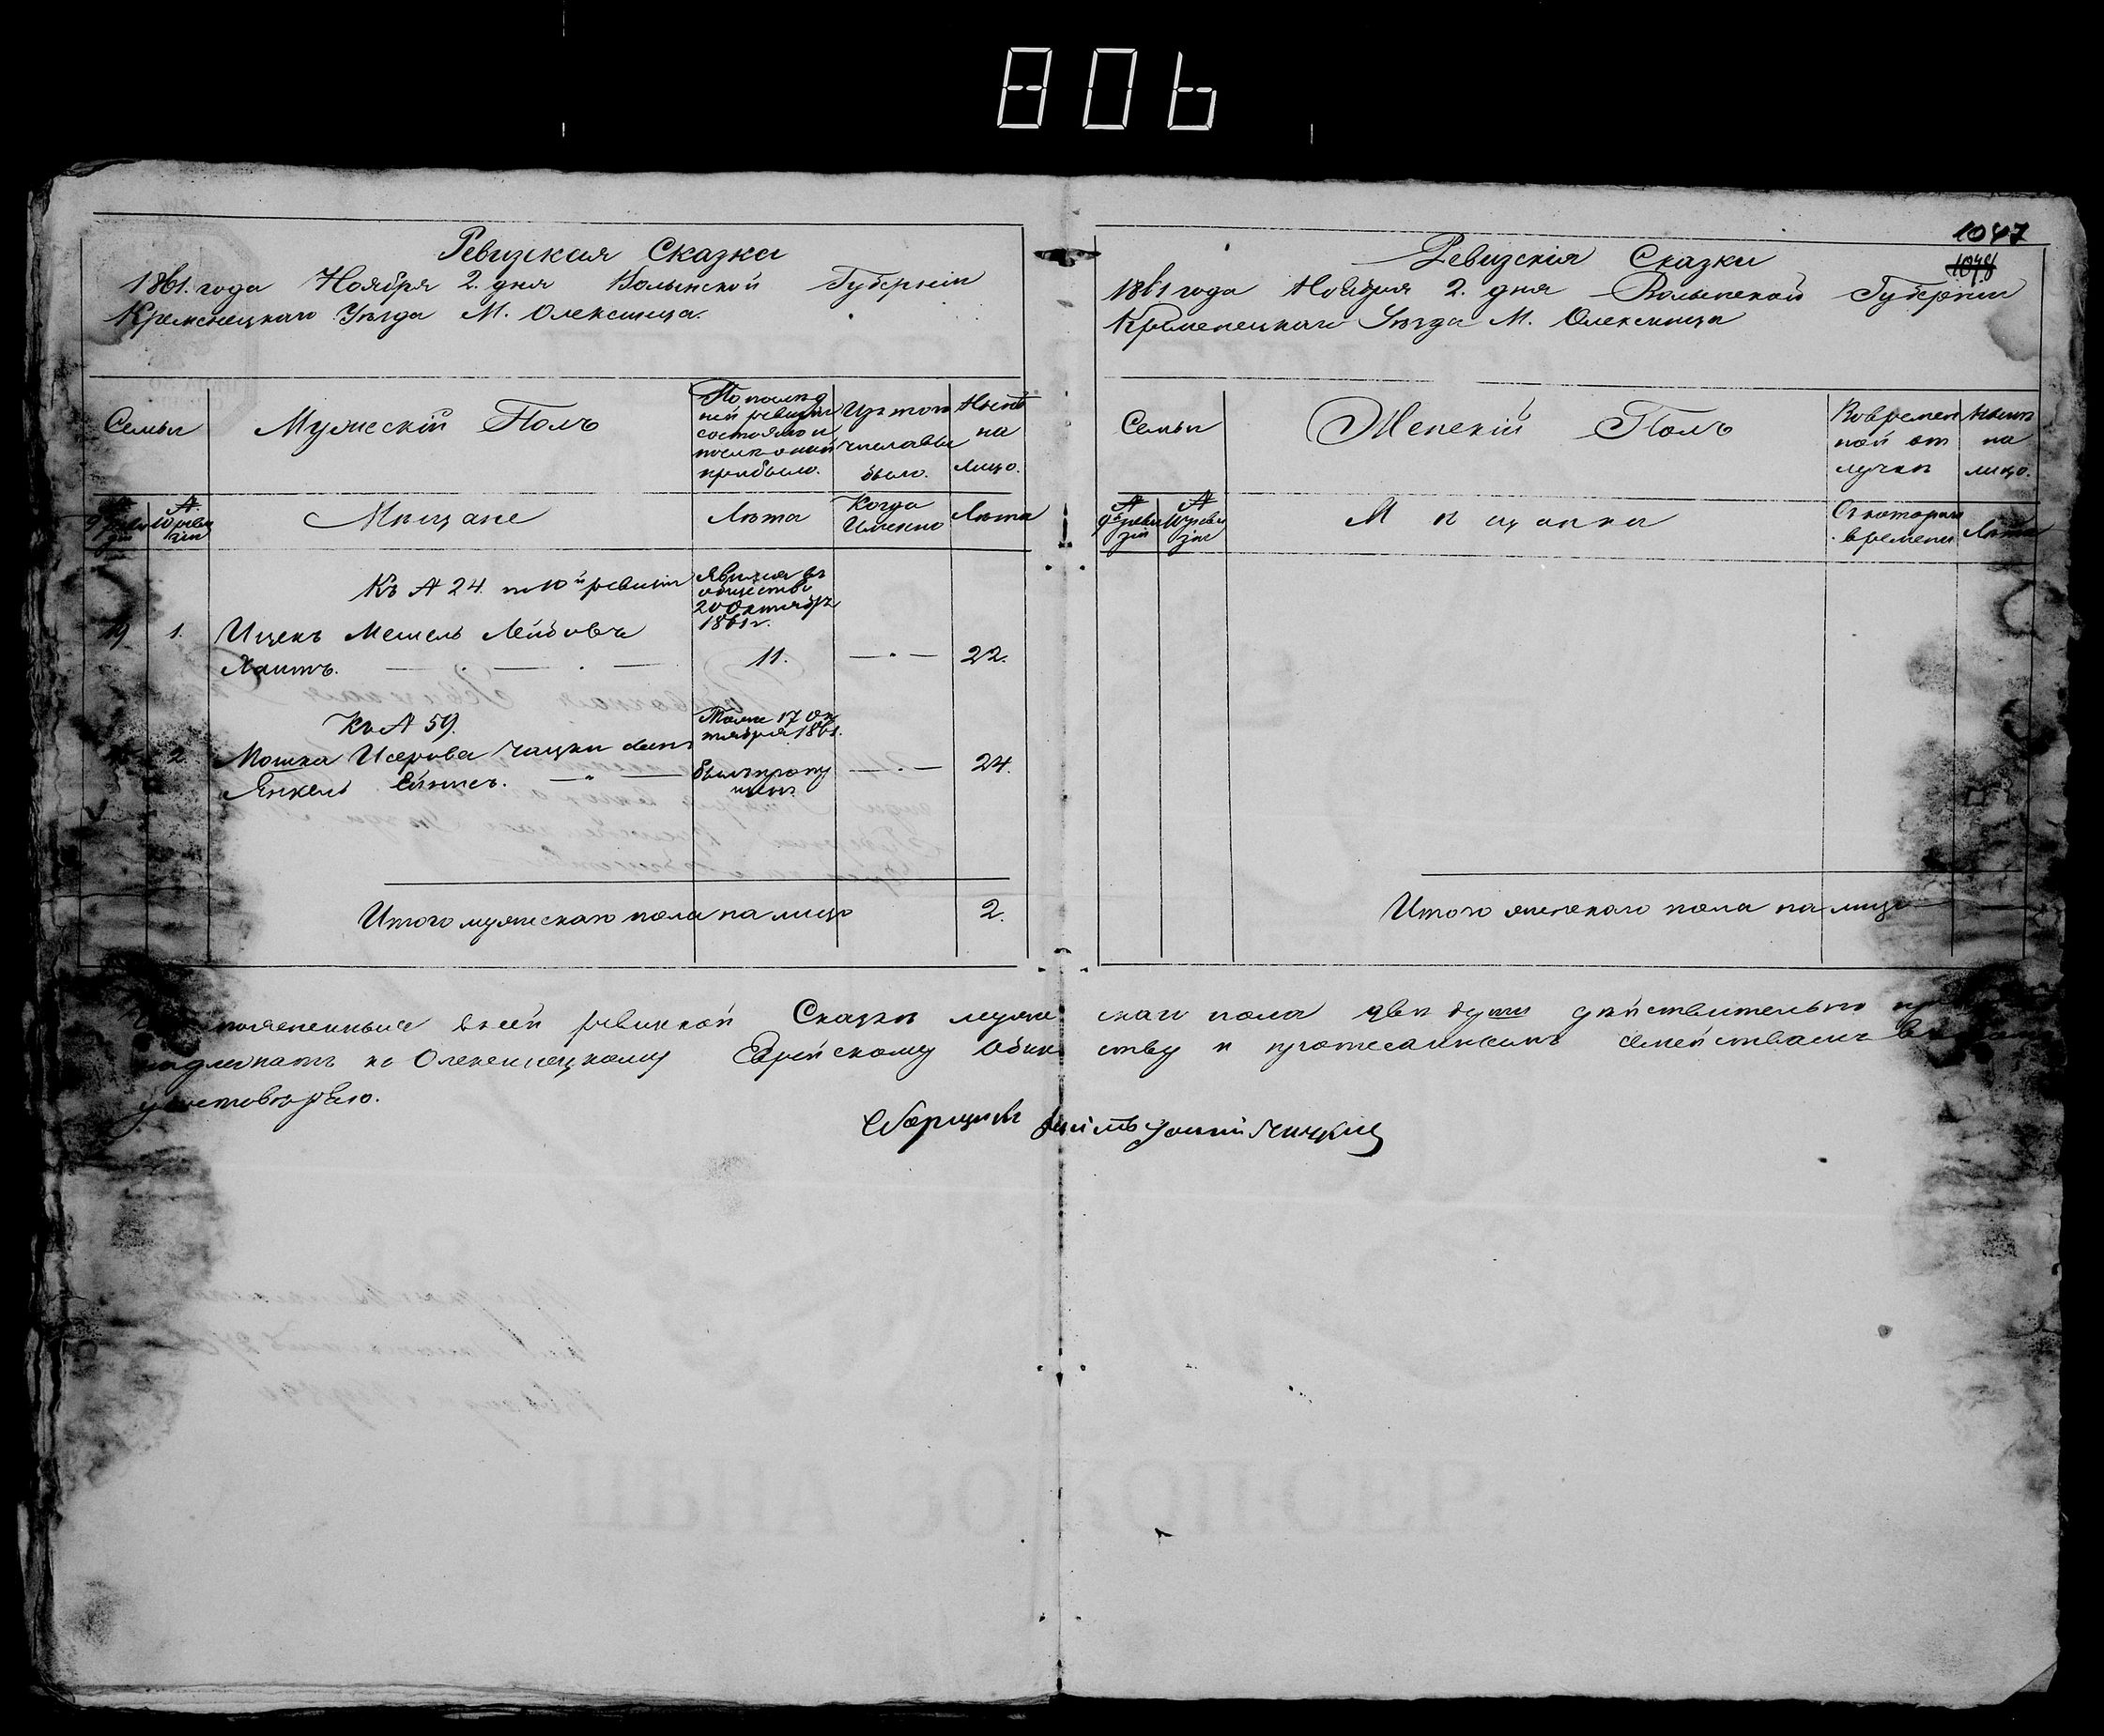 806
Ревизкая Сказка
1861. года Ноября 2. дня Волынской Губерніи
Кременецкаго Уѣзда М. Олексинца.
Семьи
Мужескій Полъ
По послѣд
ней ревизіи
состояло и
послѣ оной
прибыло.
Изъ того
числа вы
было.
Нынѣ
на
лицо.
№ 9 ревизіи
№ 10 ревизіи
Мѣщане
Лѣта
Когда
Именно
Лѣта
Къ № 24. по 10й ревизіи
Явился въ
общество
20 Октября
1861 г.
19 1. Ицекъ Мешель Лейбовъ
Хаитъ. 11. 22.
Къ № 59.
Тоже 17 Ок
тября 1861.
2. Мошка Исерова Чацки сынъ
Янкель былъ пропу
щенъ 24.
Итого мужескаго пола на лицо 2.
1047
1078
Ревизскія Сказки
1861 года Ноября 2. дня Волынской Губерніи
Кременецкаго Уѣзда М. Олексинца
Семьи
Женскій Полъ
Вовремен
ной от
лучкѣ
Нынѣ
на
лицо.
№ 9й ревизіи
№ 10 ревизіи
Мѣщанки
Съ котораго
времени
Лѣта
Итого женскаго пола на лицо
сей ревизкой Сказкѣ мужескаго пола двѣ души дѣйствительно
надлежатъ къ Олексинецкому Еврейскому Обществу и прописаннымъ семействамъ в
удостовѣряю.
Сборщикъ